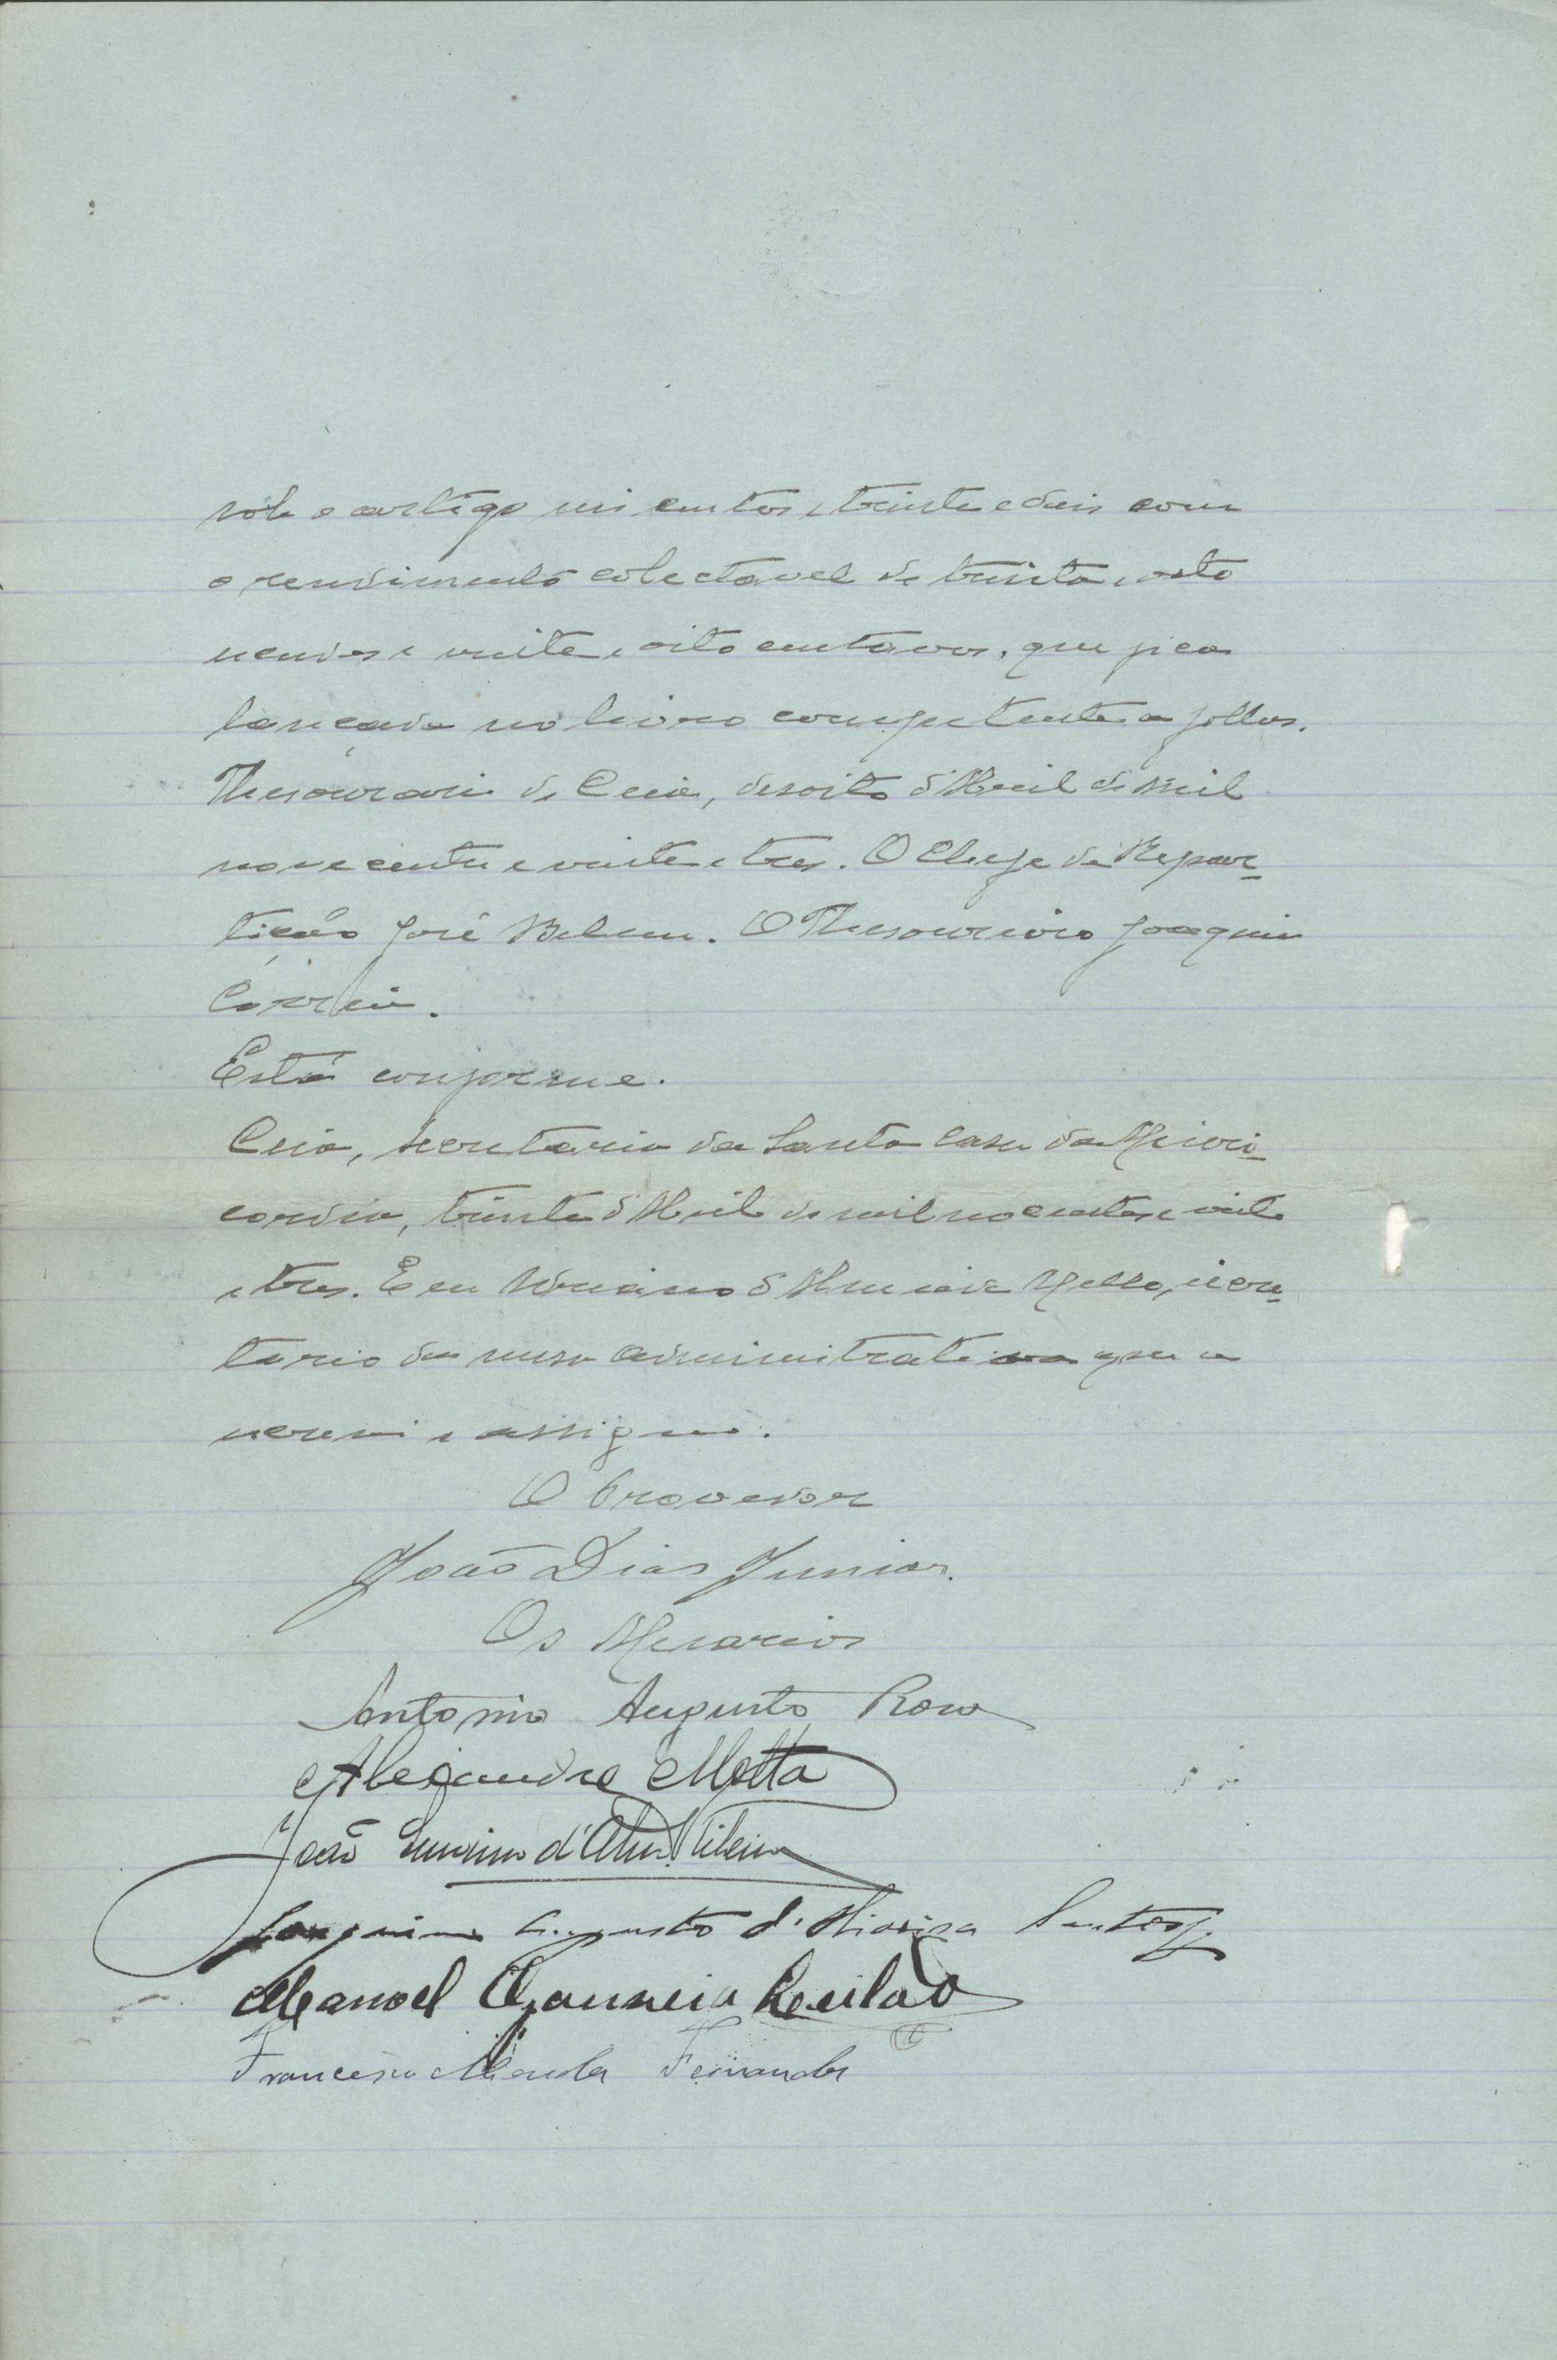 sob o artigo seis centos e trinta e dois com
o rendimento colectavel de trinta e oito
escudos e vinte e oito centavos, que fica
lançado no livro competente a folhas.
Thesouraria de Ceia, desoito d'Abril de mil
novecentos e vinte e tres. O Chefe da Repar-
tição José Belem. O Thesoureiro Joaquim
Correia.
Está conforme.
Ceia, secretaria da Santa Casa da Miseri-
cordia, trinta d'Abril de mil nocentos e vinte
e tres. E eu d'Almeida Mello, secre-
tario da mesa administrativa que a
escrevi e assigno.
O Provedor
João Dias Junior.
Os Mesarios
Antonio Augusto Rosa
Alexandre Motta
João d'Alm. Ribeiro
Joaquim Augusto d'Oliveira Santos
Manoel
Francisco Mendes Fernandes